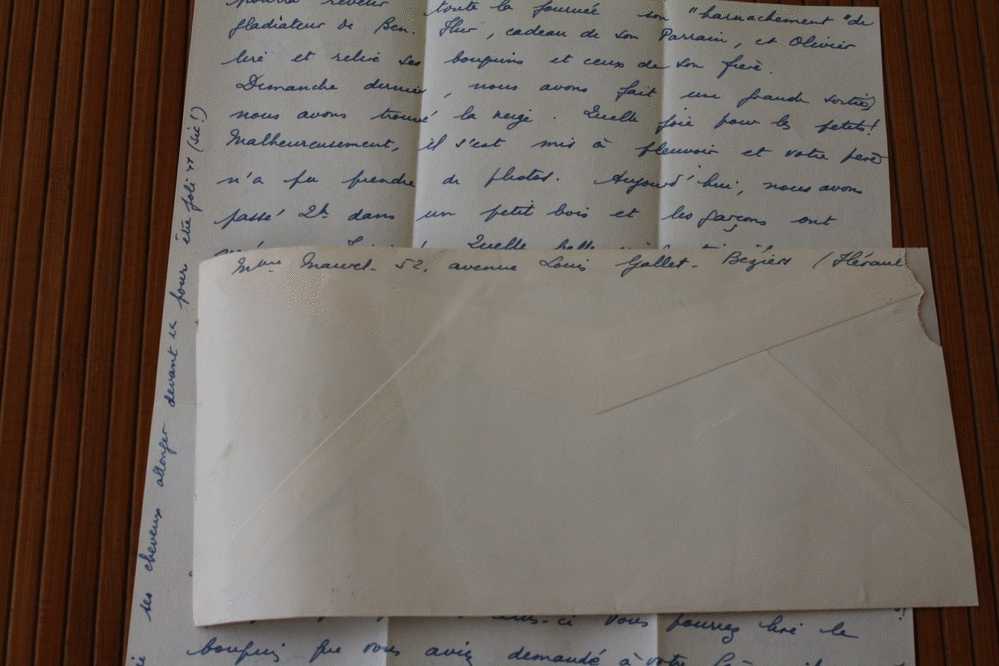 toute la journée son "harnachement" de
gladiateur de Ben-Hur, cadeau de son Parrain, et Olivier
lire et relire ses bouquins et ceux de son frère.
Dimanche dernier, nous avons fait une grande sortie,
nous avons trouvé la neige. Quelle joie pour les petits!
Malheureusement, il s'est mis à pleuvoir et votre père
n'a pu prendre de photos. Aujourd'hui, nous avons
passé 2h dans un petit bois et les garçons ont
Quelle
Mme Mauret. 52, avenue Louis Gallet. Béziers (Hérault
vous pourrez lire le
bouquin que vous aviez demandé à votre
ses cheveux allonger devant "pour être joli" (sic!)